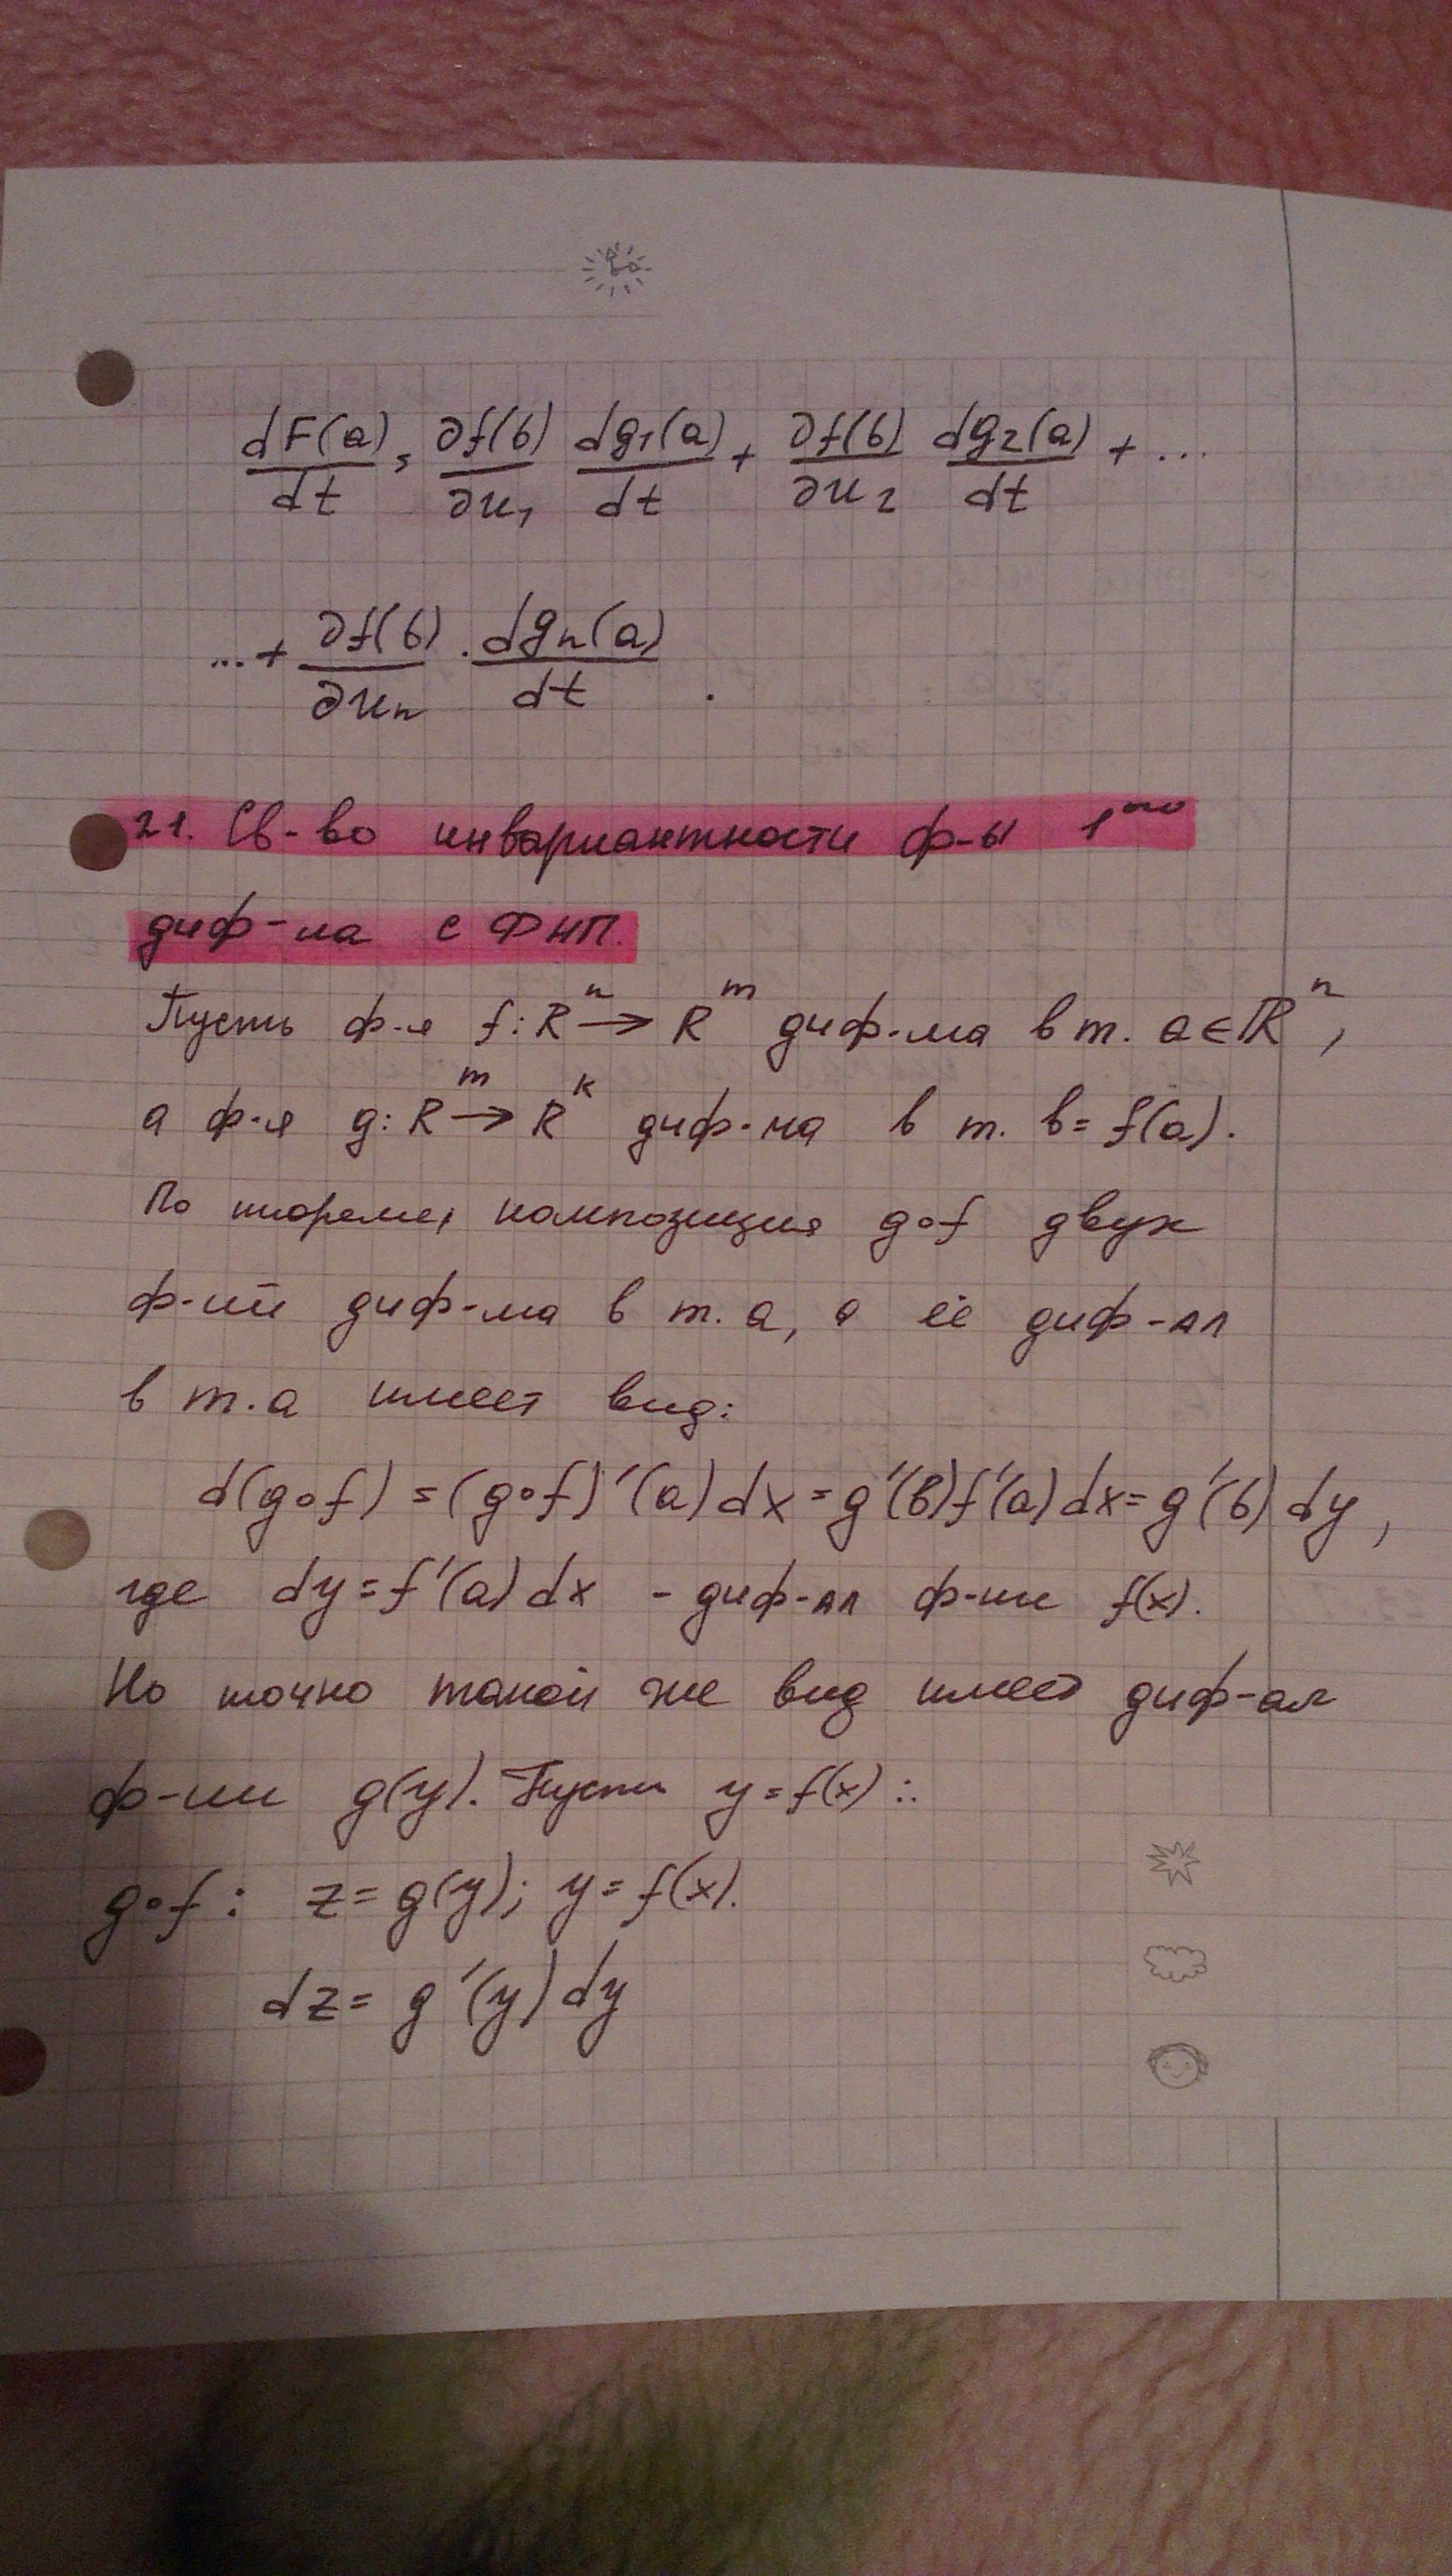 dF(a)/dt = ∂f(b)/∂u₁ dg₁(a)/dt + ∂f(b)/∂u₂ dg₂(a)/dt + ...
...+ ∂f(b)/∂uₙ · dgₙ(a)/dt .
21. Св-во инвариантности ф-ы 1ᵒᵍᵒ
диф-ла с ФНП.
Пусть ф-я f: Rⁿ → Rᵐ диф-ма в т. a∈ℝⁿ,
а ф-я g: Rᵐ → Rᵏ диф-ма в т. b= f(a).
По теореме, композиция g∘f двух
ф-ий диф-ма в т. a, а её диф-ал
в т. a имеет вид:
d(g∘f) = (g∘f)′(a)dx = g′(b)f′(a)dx = g′(b)dy,
где dy = f′(a)dx - диф-ал ф-ии f(x).
Но точно такой же вид имеет диф-ал
ф-ии g(y). Пусть y = f(x) :.
g∘f : z = g(y); y = f(x).
dz = g′(y)dy